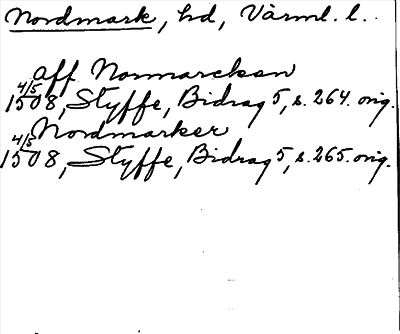 Nordmark, hd, Värml. l.
aff Normarckan
4/5 1508, Styffe, Bidrag 5, s. 264. orig.
Nordmarker
4/5 1508, Styffe, Bidrag 5, s. 265. orig.